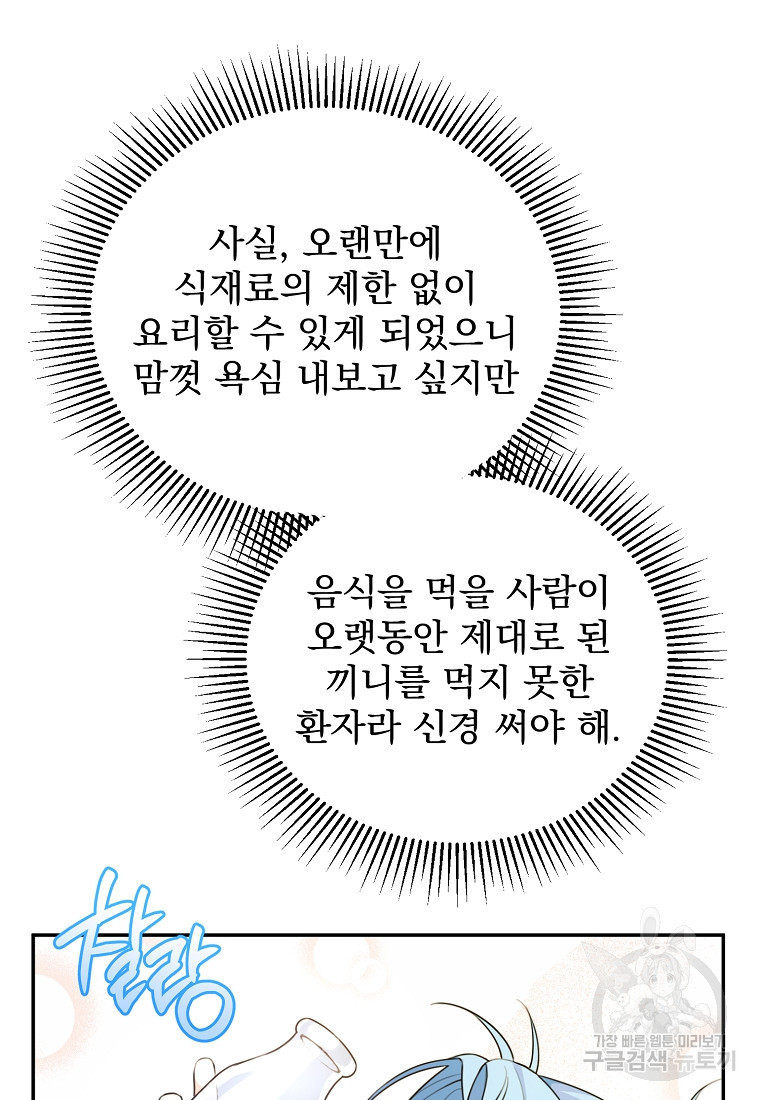 사실, 오랜만에
식재료의 제한 없이
요리할 수 있게 되었으니
맘껏 욕심 내보고 싶지만
음식을 먹을 사람이
오랫동안 제대로 된
끼니를 먹지 못한
환자라 신경 써야 해.
찰랑
가장 빠른 웹툰 미리보기
구글검색 뉴토끼